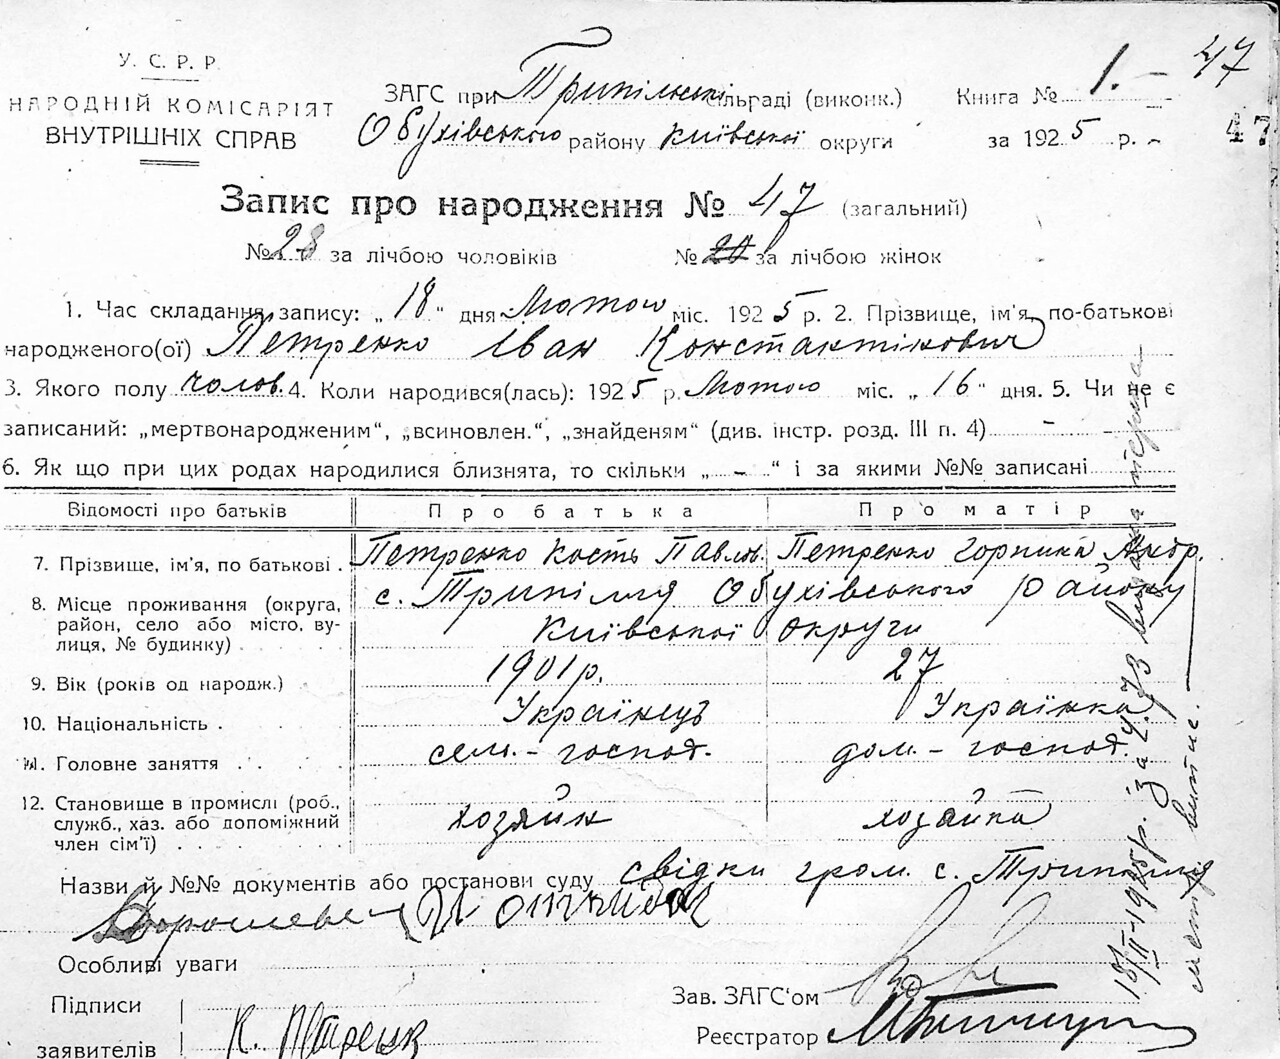 У. С. Р. Р.
НАРОДНІЙ КОМІСАРІЯТ
ВНУТРІШНІХ СПРАВ
ЗАГС при Трипільскі сільраді (виконк.)
Обухівського району Київської округи
Книга № 1. –
за 1925 р. –
47
47
Запис про народження № 47 (загальний)
№ 28 за лічбою чоловіків № 20 за лічбою жінок
1. Час складання запису: „ 18 “ дня Лютого міс. 1925 р. 2. Прізвище, ім'я, по-батькові
народженого(ої) Петренко Іван Константінович
3. Якого полу чолов. 4. Коли народився(лась): 1925 р. Лютого міс. „ 16 “ дня. 5. Чи не є
записаний: „мертвонародженим“, „всиновлен.“, „знайденям“ (див. інстр. розд. III п. 4) –
6. Як що при цих родах народилися близнята, то скільки „ – “ і за якими №№ записані
Відомості про батьків Про батька Про матір
7. Прізвище, ім'я, по батькові . Петренко Кость Павлов. Петренко Горпина Андр.
8. Місце проживання (округа, район, село або місто, вулиця, № будинку) . . . . с. Трипілля Обухівського району
Київської округи
9. Вік (років од народж.) 1901 р. 27
10. Національність . Українець Українка
11. Головне заняття . . . . сель. – господ. дом. – господ.
12. Становище в промислі (роб., служб., хаз. або допоміжний член сім'ї) . . . . . хозяйин хозяйка
Назви й №№ документів або постанови суду свідки гром. с. Трипілля
Особливі уваги
Підписи
заявителів К. Петренк
Зав. ЗАГС'ом
Реєстратор
18/II–1925 р. за № 73 видана перша
метр. выпис.